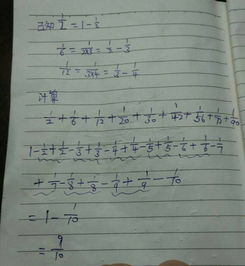 已知 1/2 = 1 - 1/2
1/6 = 1/2×3 = 1/2 - 1/3
1/12 = 1/3×4 = 1/3 - 1/4
计算
1/2 + 1/6 + 1/12 + 1/20 + 1/30 + 1/42 + 1/56 + 1/72 + 1/90
1 - 1/2 + 1/2 - 1/3 + 1/3 - 1/4 + 1/4 - 1/5 + 1/5 - 1/6 + 1/6 - 1/7
+ 1/7 - 1/8 + 1/8 - 1/9 + 1/9 - 1/10
= 1 - 1/10
= 9/10